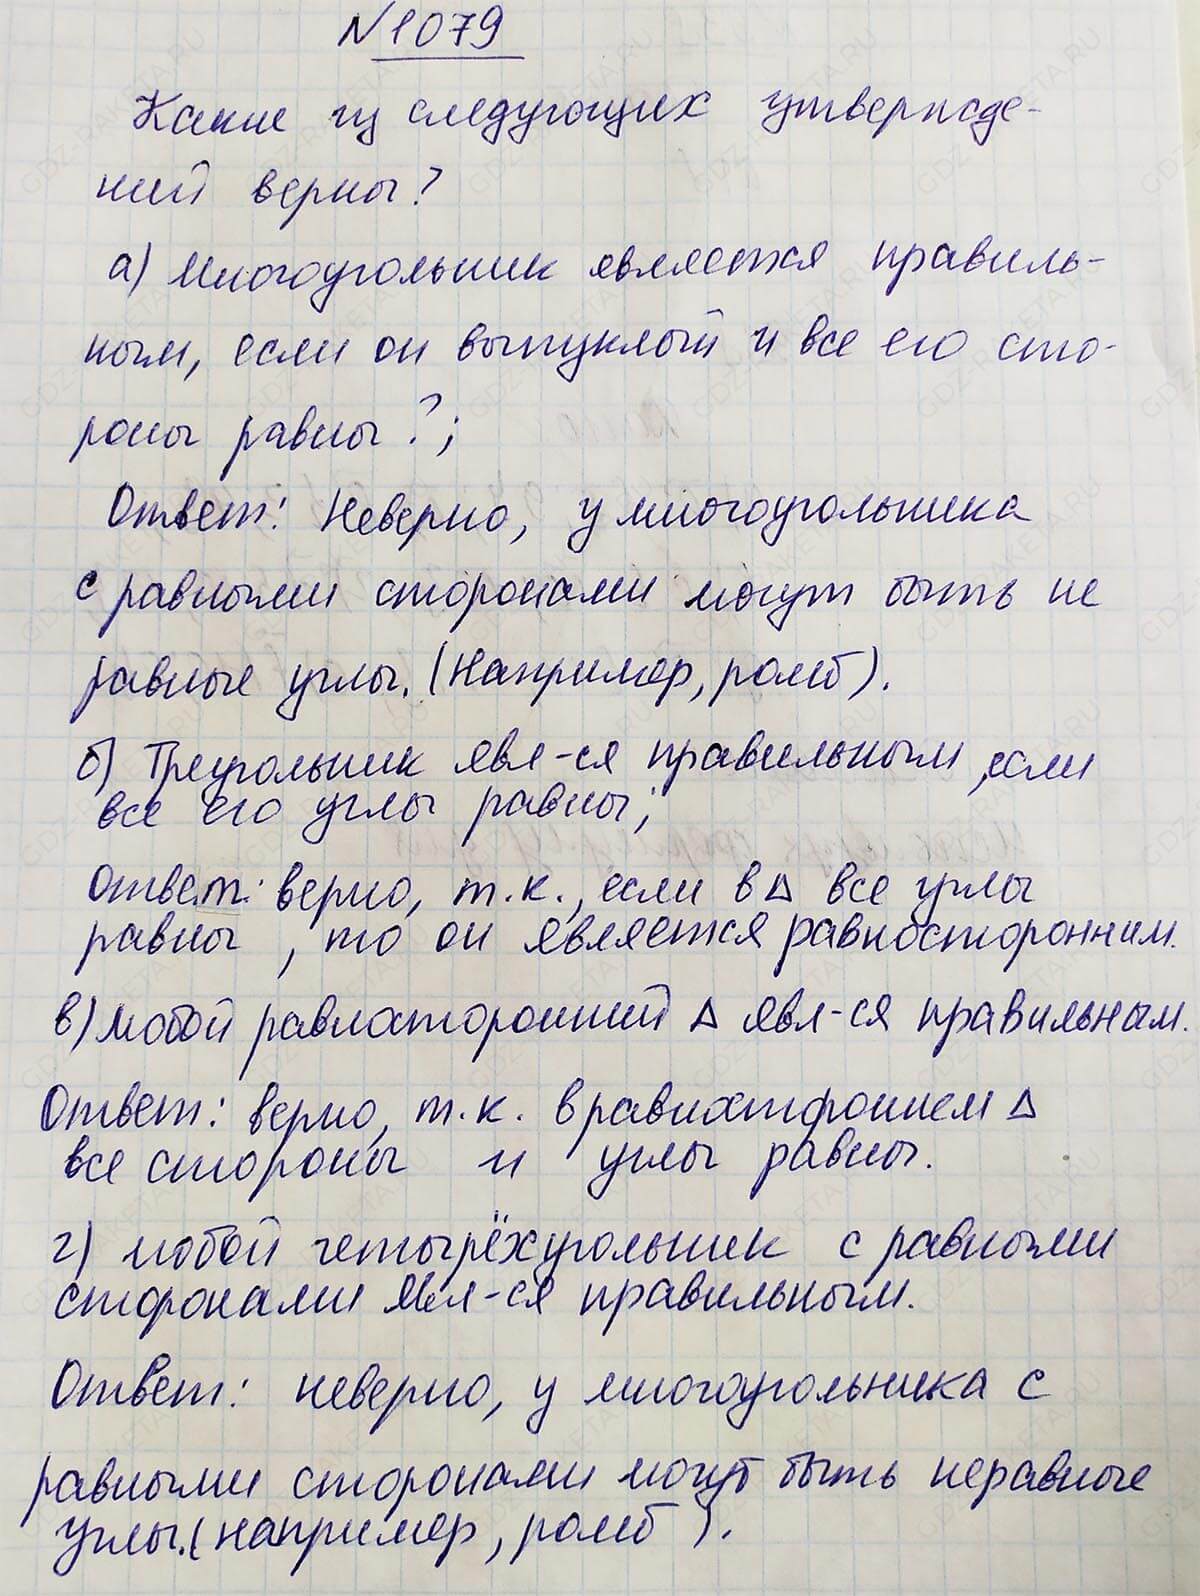 №1079
Какие из следующих утвержде-
ний верны?
а) Многоугольник является правиль-
ным, если он выпуклый и все его сто-
роны равны?;
Ответ: Неверно, у многоугольника
с равными сторонами могут быть не
равные углы. (Например, ромб).
б) Треугольник явл-ся правильным, если
все его углы равны;
Ответ: верно, т.к., если в △ все углы
равны, то он является равносторонним.
в) Любой равносторонний △ явл-ся правильным.
Ответ: верно, т.к. в равностороннем △
все стороны и углы равны.
г) любой четырёхугольник с равными
сторонами явл-ся правильным.
Ответ: неверно, у многоугольника с
равными сторонами могут быть неравные
углы. (например, ромб).